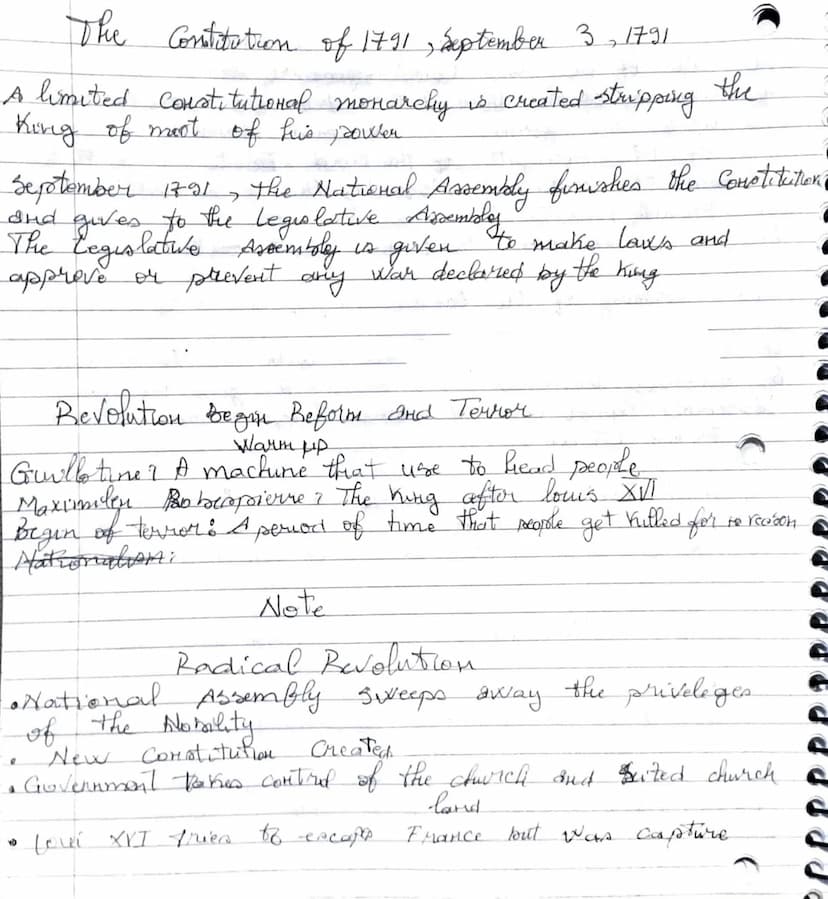 The Constitution of 1791, September 3, 1791
A limited constitutional monarchy is created stripping the
King of most of his power
September 1791, the National Assembly finishes the Constitution
and gives to the Legislative Assembly
The Legislative Assembly is given to make laws and
approve or prevent any war declared by the King
Revolution begin Reform and Terror
Warm up
Guillotine? A machine that use to head people
Maximilen Robespierre? The King after louis XVI
Begin of terror: A period of time that people get killed for no reason
Nationalism:
Note
Radical Revolution
• National Assembly sweeps away the priveleges
of the Nobility
• New constitution Created
• Government takes control of the church and suited church
land
• Loui XVI tries to escape France but was capture